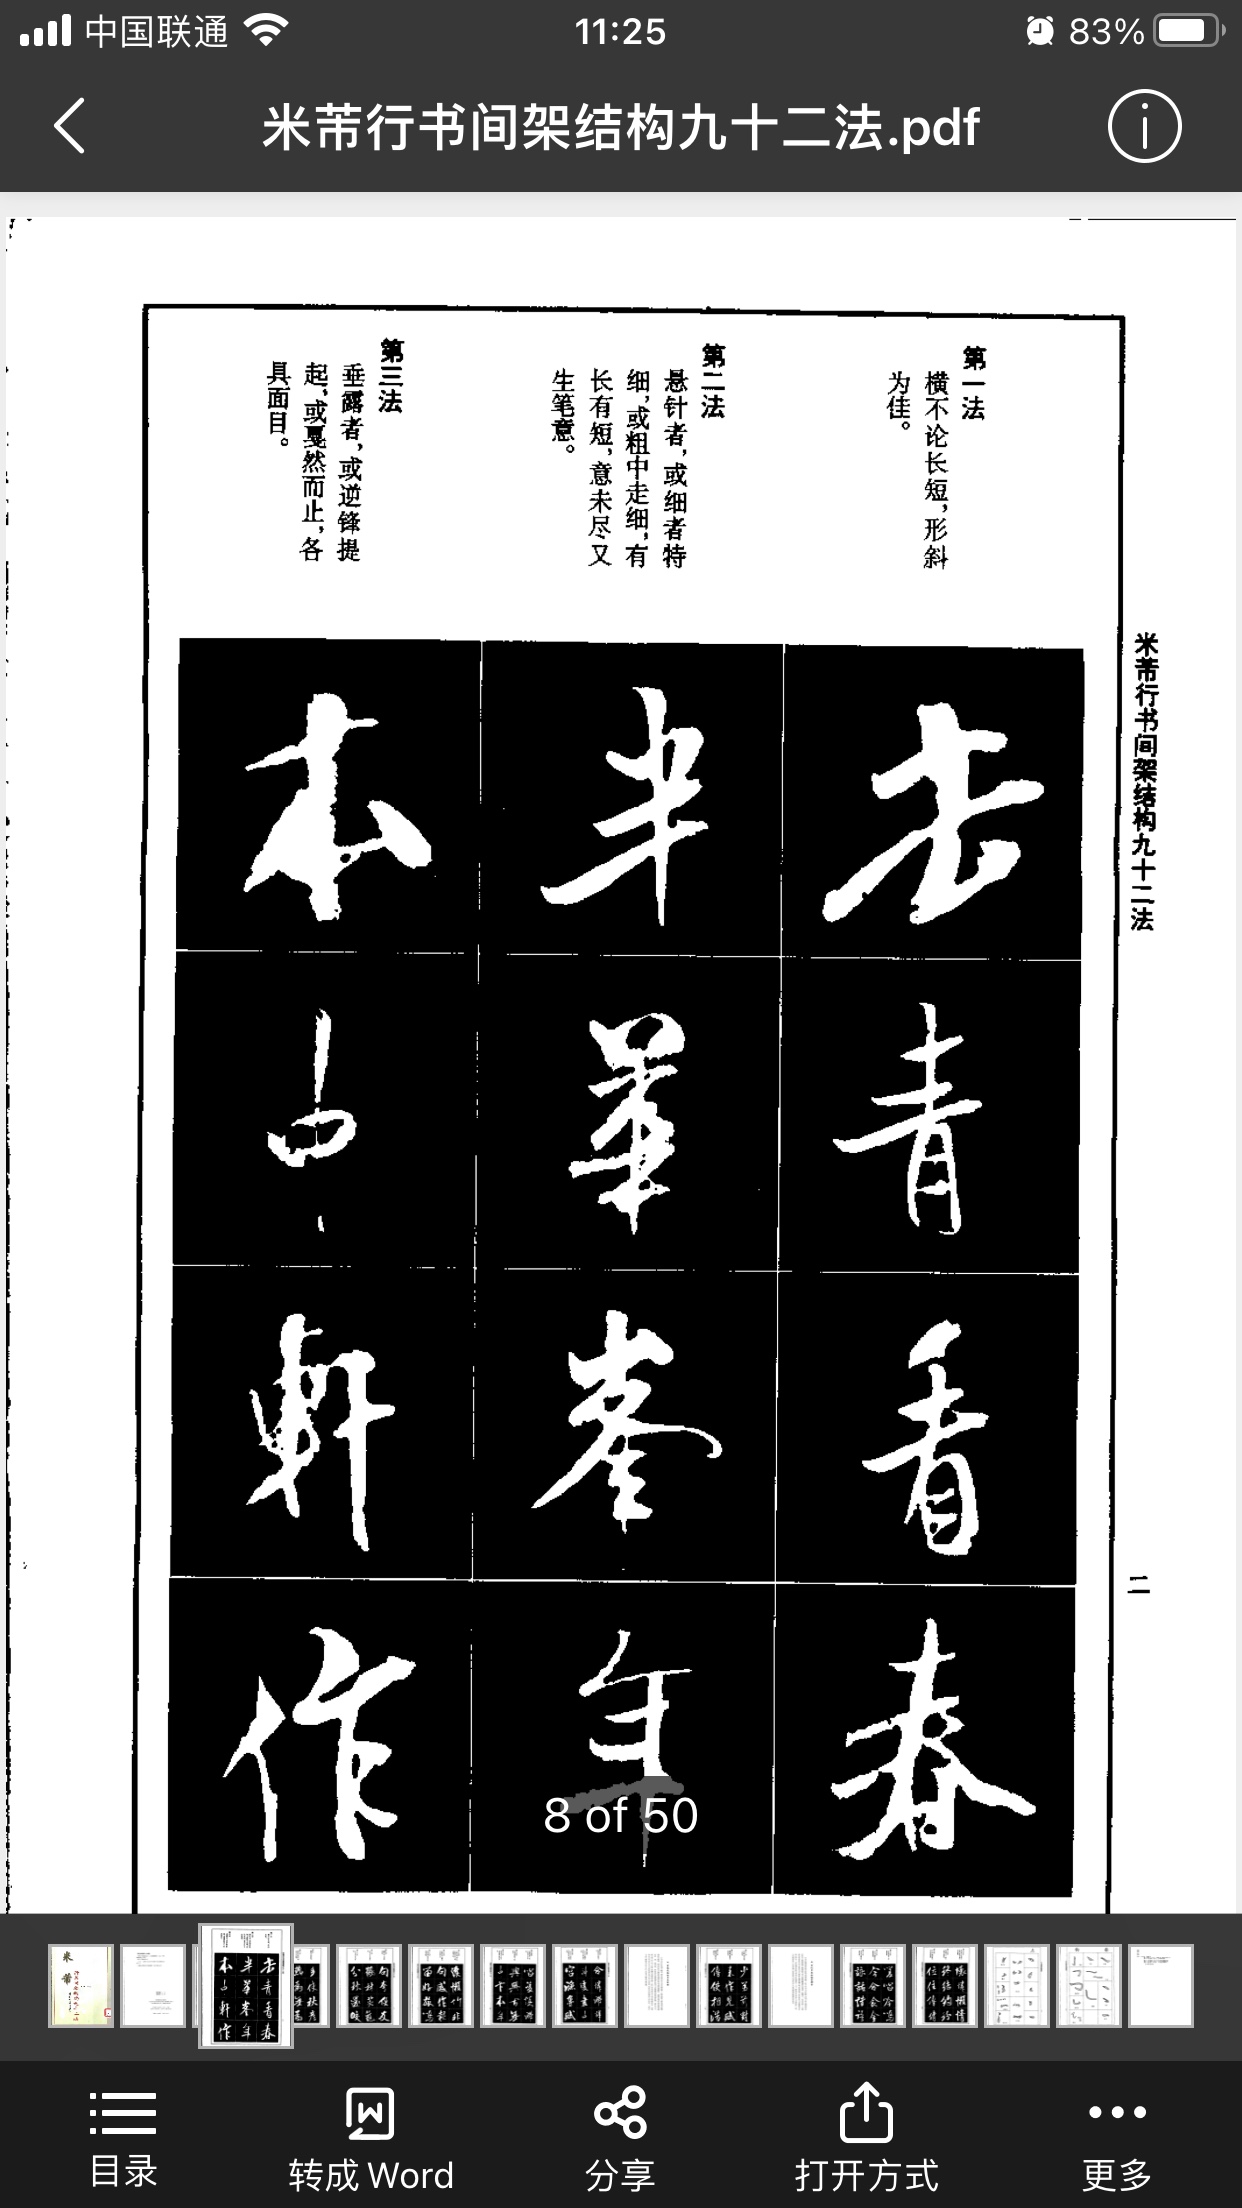 中国联通
11:25
83%
米芾行书间架结构九十二法.pdf
米芾行书间架结构九十二法
二
第一法
横不论长短，形斜
为佳。
第二法
悬针者，或细者特
细，或粗中走细，有
长有短，意未尽又
生笔意。
第三法
垂露者，或逆锋提
起，或戛然而止，各
具面目。
青
香
春
半
華
峯
年
本
中
軒
作
8 of 50
目录
转成 Word
分享
打开方式
更多